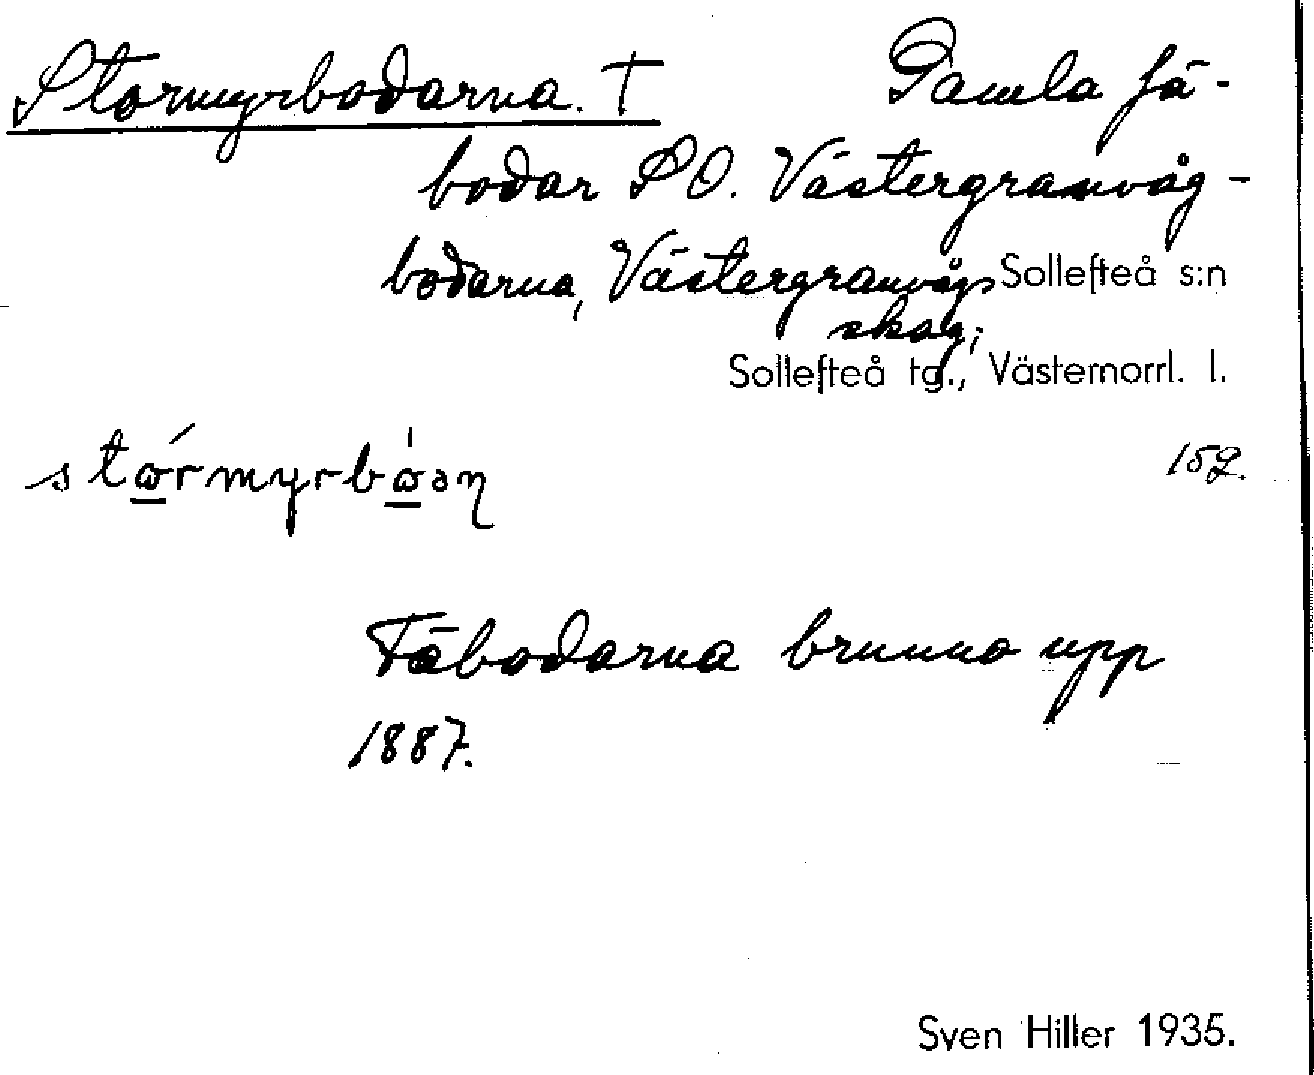 Stormyrbodarna. † Gamla fä-
bodar SO. Västergranvåg-
bodarna, Västergranvågs Sollefteå s:n
skog;
Sollefteå tg., Västernorrl. l.
152.
Fäbodarna brunno upp
1887.
Sven Hiller 1935.